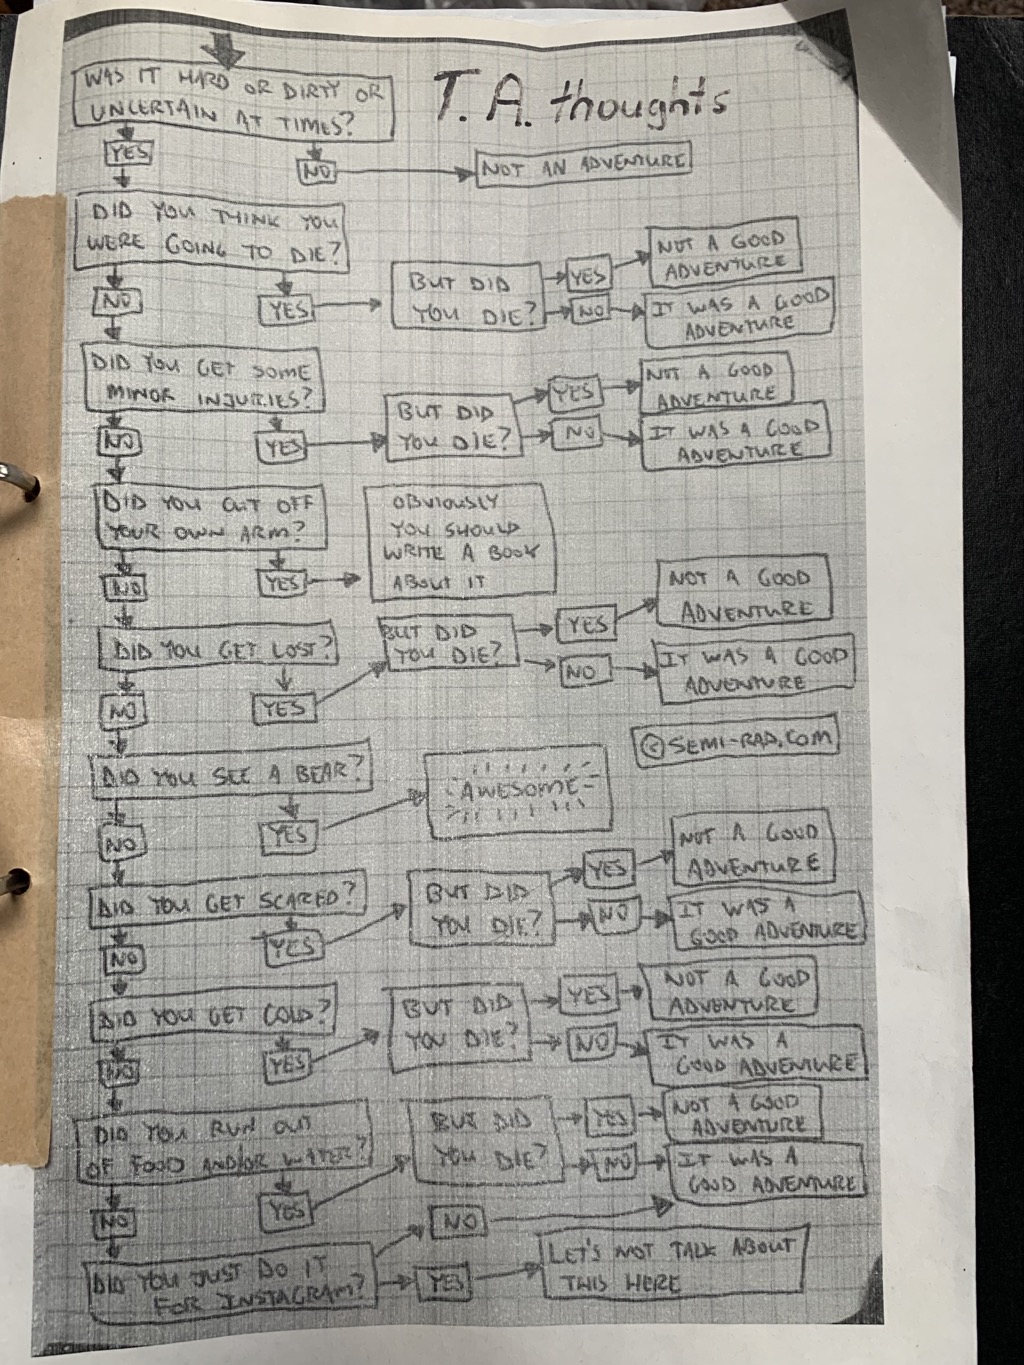 T.A. thoughts
WAS IT HARD OR DIRTY OR
UNCERTAIN AT TIMES?
YES
NO
NOT AN ADVENTURE
DID YOU THINK YOU
WERE GOING TO DIE?
NO
YES
BUT DID
YOU DIE?
YES
NOT A GOOD
ADVENTURE
NO
IT WAS A GOOD
ADVENTURE
DID YOU GET SOME
MINOR INJURIES?
NO
YES
BUT DID
YOU DIE?
YES
NOT A GOOD
ADVENTURE
NO
IT WAS A GOOD
ADVENTURE
DID YOU CUT OFF
YOUR OWN ARM?
NO
YES
OBVIOUSLY
YOU SHOULD
WRITE A BOOK
ABOUT IT
DID YOU GET LOST?
NO
YES
BUT DID
YOU DIE?
YES
NOT A GOOD
ADVENTURE
NO
IT WAS A GOOD
ADVENTURE
© SEMI-RAD.COM
DID YOU SEE A BEAR?
NO
YES
AWESOME
DID YOU GET SCARED?
NO
YES
BUT DID
YOU DIE?
YES
NOT A GOOD
ADVENTURE
NO
IT WAS A
GOOD ADVENTURE
DID YOU GET COLD?
NO
YES
BUT DID
YOU DIE?
YES
NOT A GOOD
ADVENTURE
NO
IT WAS A
GOOD ADVENTURE
DID YOU RUN OUT
OF FOOD AND/OR WATER?
NO
YES
BUT DID
YOU DIE?
YES
NOT A GOOD
ADVENTURE
NO
IT WAS A
GOOD ADVENTURE
DID YOU JUST DO IT
FOR INSTAGRAM?
NO
YES
LET'S NOT TALK ABOUT
THIS HERE